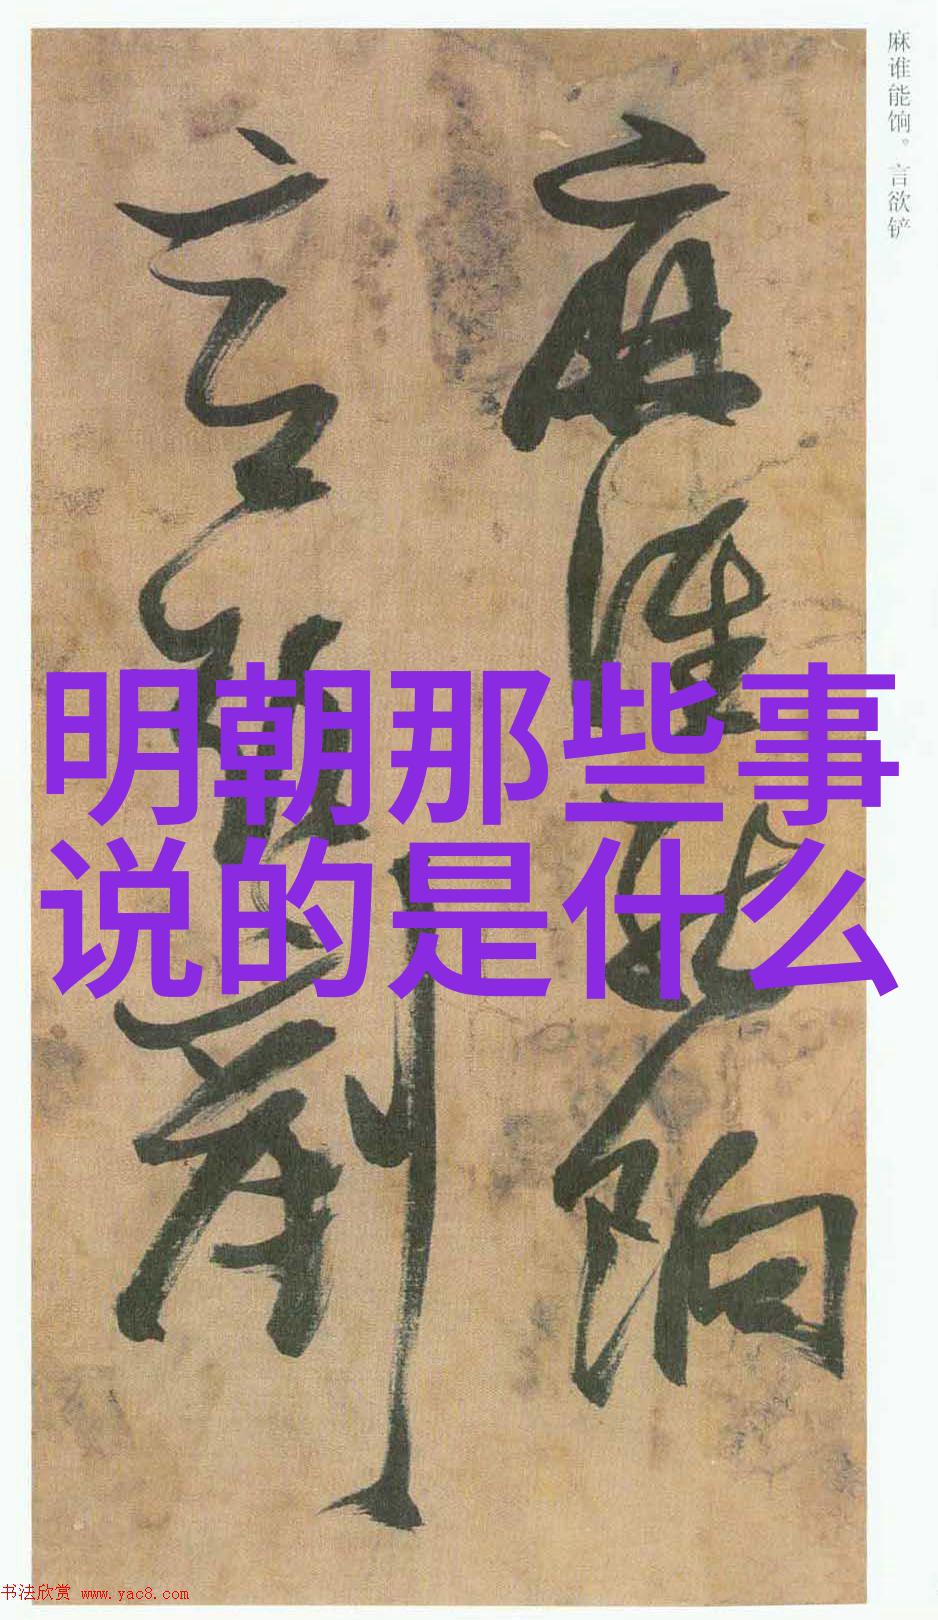 麻谁能饷。言欲铲
麻谁能饷
言欲剷
明朝那些事
说的是什么
书法欣赏 www.yac8.com